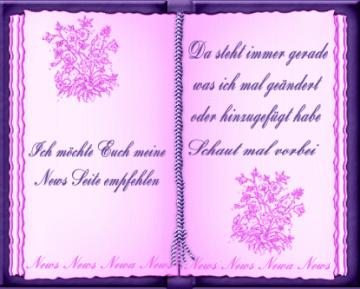 Ich möchte Euch meine
News Seite empfehlen
News News Newa News
Da steht immer gerade
was ich mal geändert
oder hinzugefügt habe
Schaut mal vorbei
News News News News